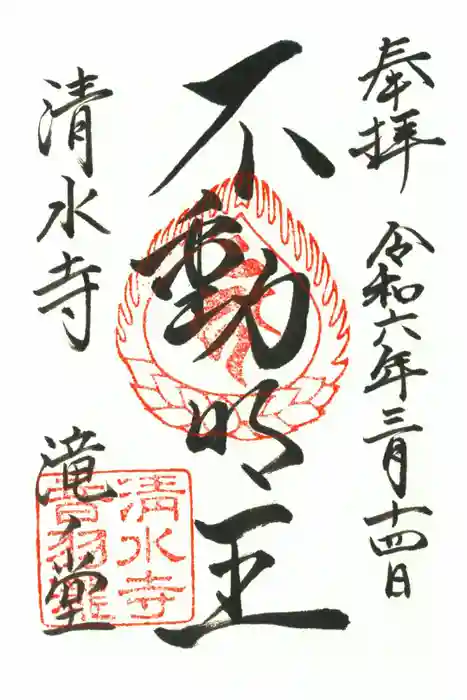 奉拝 令和六年三月十四日
不動明王
清水寺 滝之堂
清水寺
音羽滝